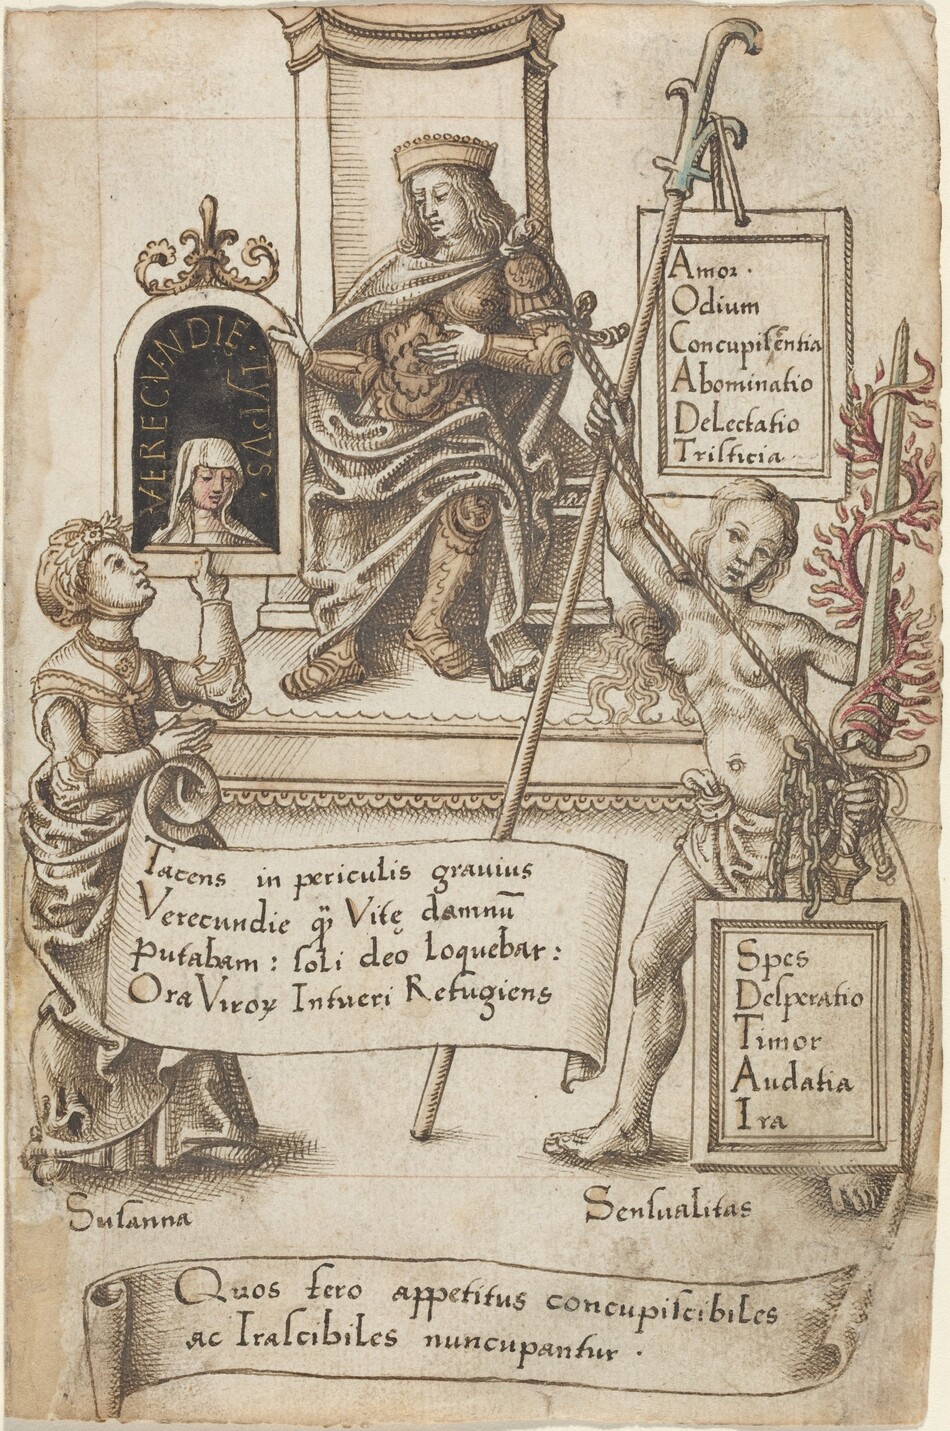 VERECUNDIE·TYPVS·
Amor·
Odium
Concupiscẽntia
Abominatio
Delectatio
Tristicia
Tacens in periculis gravius
Verecundie q̈ Vitę damnū
Putabam: soli deo loquebar:
Ora Viroꝝ Intueri Refugiens
Spes
Desperatio
Timor
Audatia
Ira
Susanna
Sensualitas
Quos fero appetitus concupiscibiles
ac Irascibiles nuncupantur·